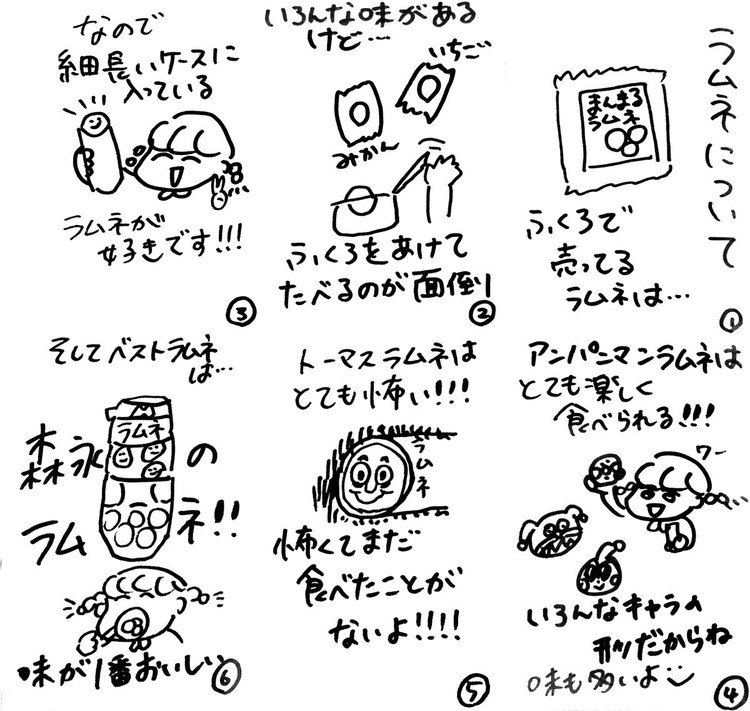 ラムネについて
まんまる
ラムネ
ふくろで
売ってる
ラムネは…
①
いろんな味がある
けど…
いちご
みかん
ふくろをあけて
たべるのが面倒
②
なので
細長いケースに
入っている
ラムネが
好きです!!!
③
アンパンマンラムネは
とても楽しく
食べられる!!!
ワー
いろんなキャラの
形だからね
味も多いよ
④
トーマスラムネは
とても怖い!!!
ラムネ
怖くてまだ
食べたことが
ないよ!!!!
⑤
そしてベストラムネ
は…
森永の
ラムネ
ラムネ!!
味が1番おいしい
⑥